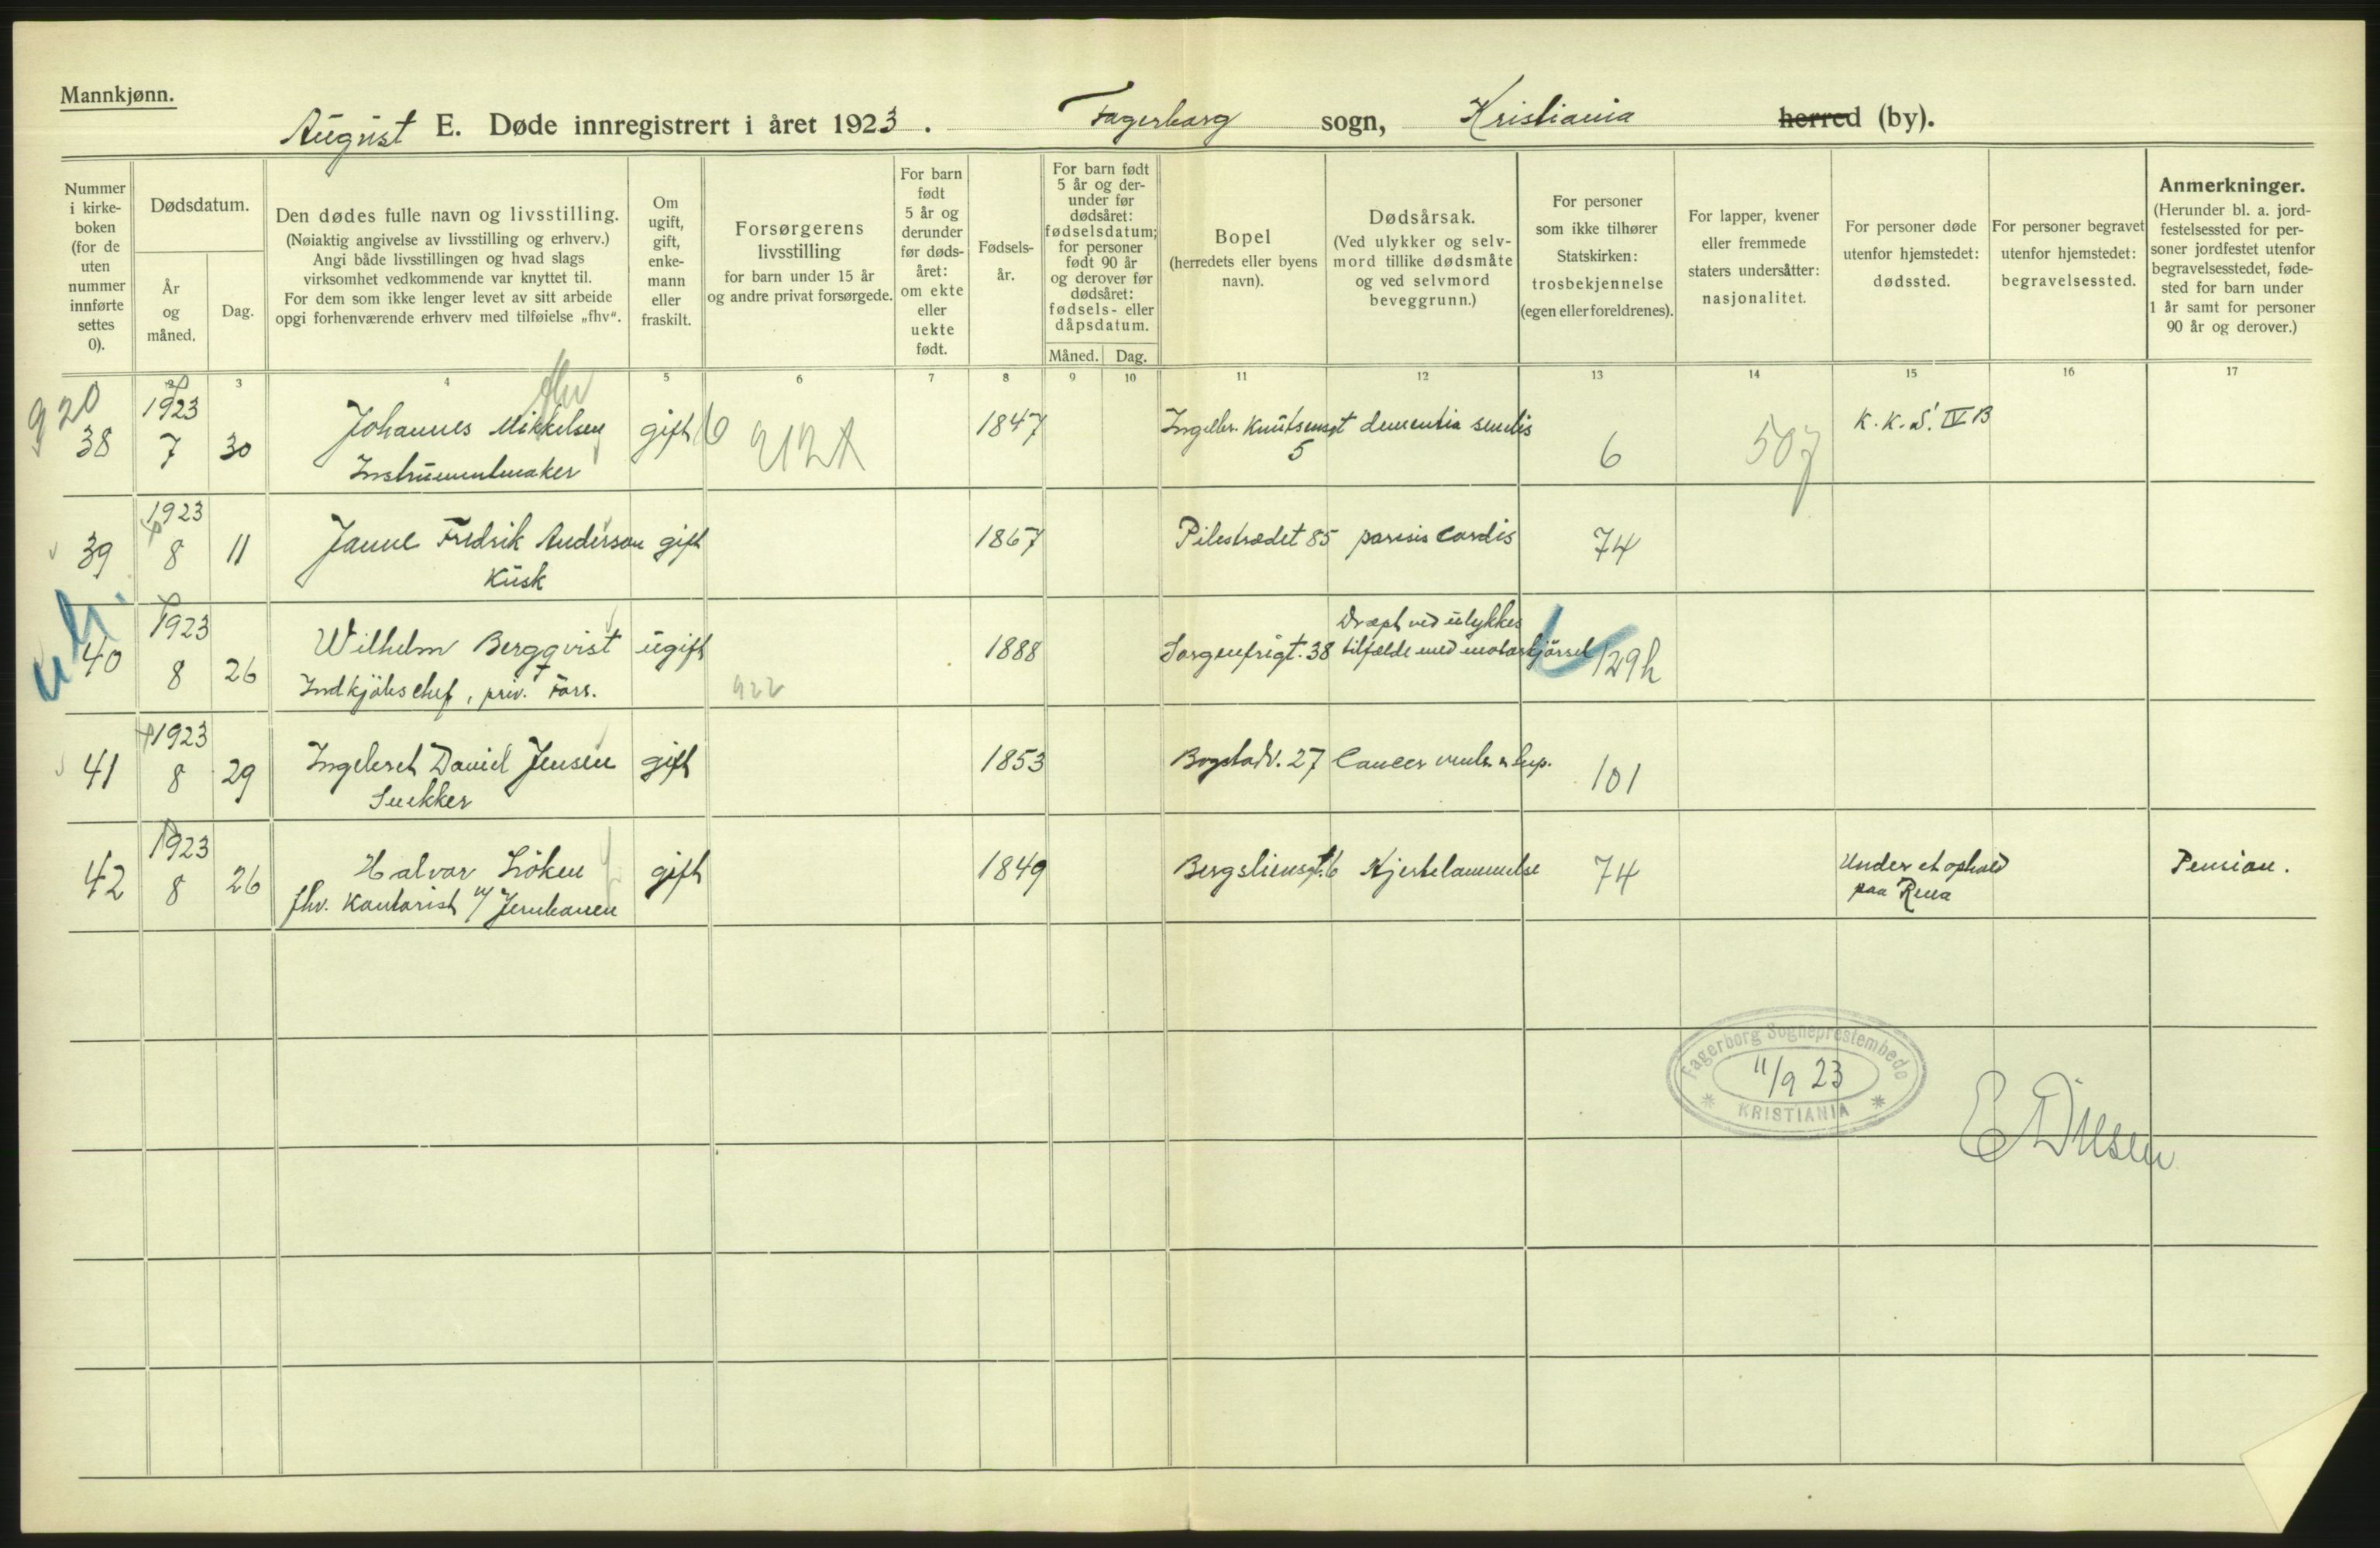 Mannkjønn.
August E. Døde innregistrert i året 1923. Fagerborg sogn, Kristiania herred (by).
Nummer i kirke-boken (for de uten nummer innførte settes 0).
Dødsdatum.
År og måned.
Dag.
Den dødes fulle navn og livsstilling.
(Nøiaktig angivelse av livsstilling og erhverv.)
Angi både livsstillingen og hvad slags
virksomhet vedkommende var knyttet til.
For dem som ikke lenger levet av sitt arbeide
opgi forhenværende erhverv med tilføielse „fhv“.
Om ugift, gift, enke-mann eller fraskilt.
Forsørgerens
livsstilling
for barn under 15 år
og andre privat forsørgede.
For barn født 5 år og derunder før døds-året: om ekte eller uekte født.
Fødsels-år.
For barn født 5 år og der-under før dødsåret: fødselsdatum; for personer født 90 år og derover før dødsåret: fødsels- eller dåpsdatum.
Måned. Dag.
Bopel
(herredets eller byens
navn).
Dødsårsak.
(Ved ulykker og selv-
mord tillike dødsmåte
og ved selvmord
beveggrunn.)
For personer
som ikke tilhører
Statskirken:
trosbekjennelse
(egen eller foreldrenes).
For lapper, kvener
eller fremmede
staters undersåtter:
nasjonalitet.
For personer døde
utenfor hjemstedet:
dødssted.
For personer begravet
utenfor hjemstedet:
begravelsessted.
Anmerkninger.
(Herunder bl. a. jord-
festelsessted for per-
soner jordfestet utenfor
begravelsesstedet, føde-
sted for barn under
1 år samt for personer
90 år og derover.)
2 3 4 5 6 7 8 9 10 11 12 13 14 15 16 17
920
38 1923 7 30 Johannes Mikkelsen fhv gift 1847 Ingebr. Knutsensgt 5 dementia senilis 6 507 K.K.S. IV B
Instrumentmaker
39 1923 8 11 Janne Fredrik Anderson gift 1867 Pilestrædet 85 paresis cordis 74
Kusk
40 1923 8 26 Wilhelm Bergqvist ugift 1888 Sorgenfrigt. 38 Dræpt ved ulykkes tilfælde med motorkjörsel 129h
Indkjöbschef, priv. Forr. 922
41 1923 8 29 Ingebret Daniel Jensen gift 1853 Bogstadv. 27 Cancer 101
Snekker
42 1923 8 26 Halvor Löken gift 1849 Bergsliensgt. 6 Hjertelammelse 74 Under et ophold paa Rena Pension.
fhv. Kontorist v/ Jernbanen
Fagerborg Sogneprestembede
11/9 23
KRISTIANIA